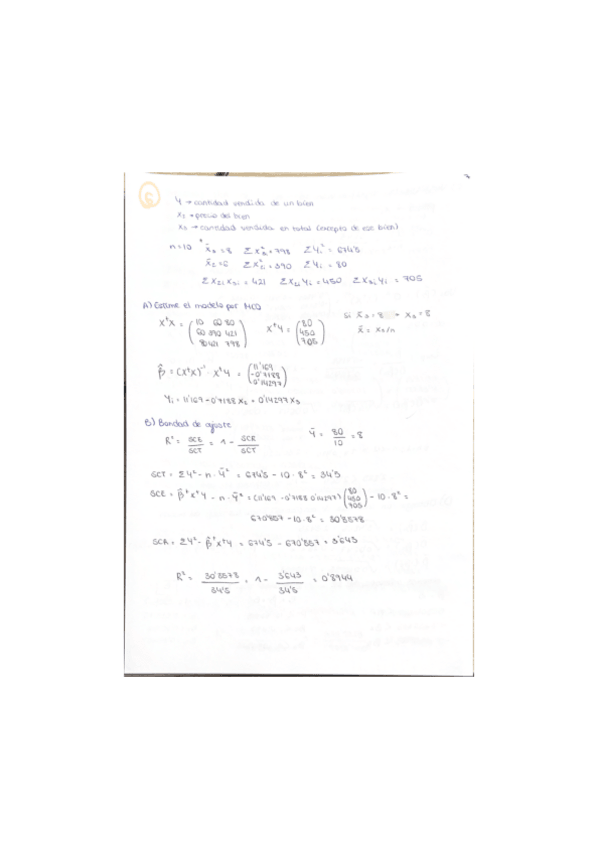 Y → cantidad vendida de un bien
X₂ → precio del bien
X₃ → cantidad vendida en total (excepto de ese bien)
n=10 X̄₃=8 ΣX²₃ᵢ=798 ΣYᵢ² = 674'5
X̄₂=6 ΣX²₂ᵢ=390 ΣYᵢ = 80
ΣX₂ᵢX₃ᵢ = 421 ΣX₂ᵢYᵢ = 450 ΣX₃ᵢYᵢ = 705
A) Estime el modelo por MCO
Si X̄₃=8 → X₃=8
X̄ = X₃/n
XᵗX = (10 60 80
60 390 421
80 421 798)
XᵗY = (80
450
705)
β̂ = (XᵗX)⁻¹ · XᵗY = (11'169
-0'7188
0'14297)
Yᵢ = 11'169 - 0'7188 X₂ + 0'14297 X₃
B) Bondad de ajuste
R² = SCE/SCT = 1 - SCR/SCT Ȳ = 80/10 = 8
SCT = ΣY² - n·Ȳ² = 674'5 - 10·8² = 34'5
SCE = β̂ᵗXᵗY - n·Ȳ² = (11'169 -0'7188 0'14297) (80 450 705) - 10·8² =
670'857 - 10·8² = 30'8578
= ΣY² - β̂ᵗXᵗY = 674'5 - 670'857 = 3'643
R² = 30'8578/34'5 = 1 - 3'643/34'5 = 0'8944